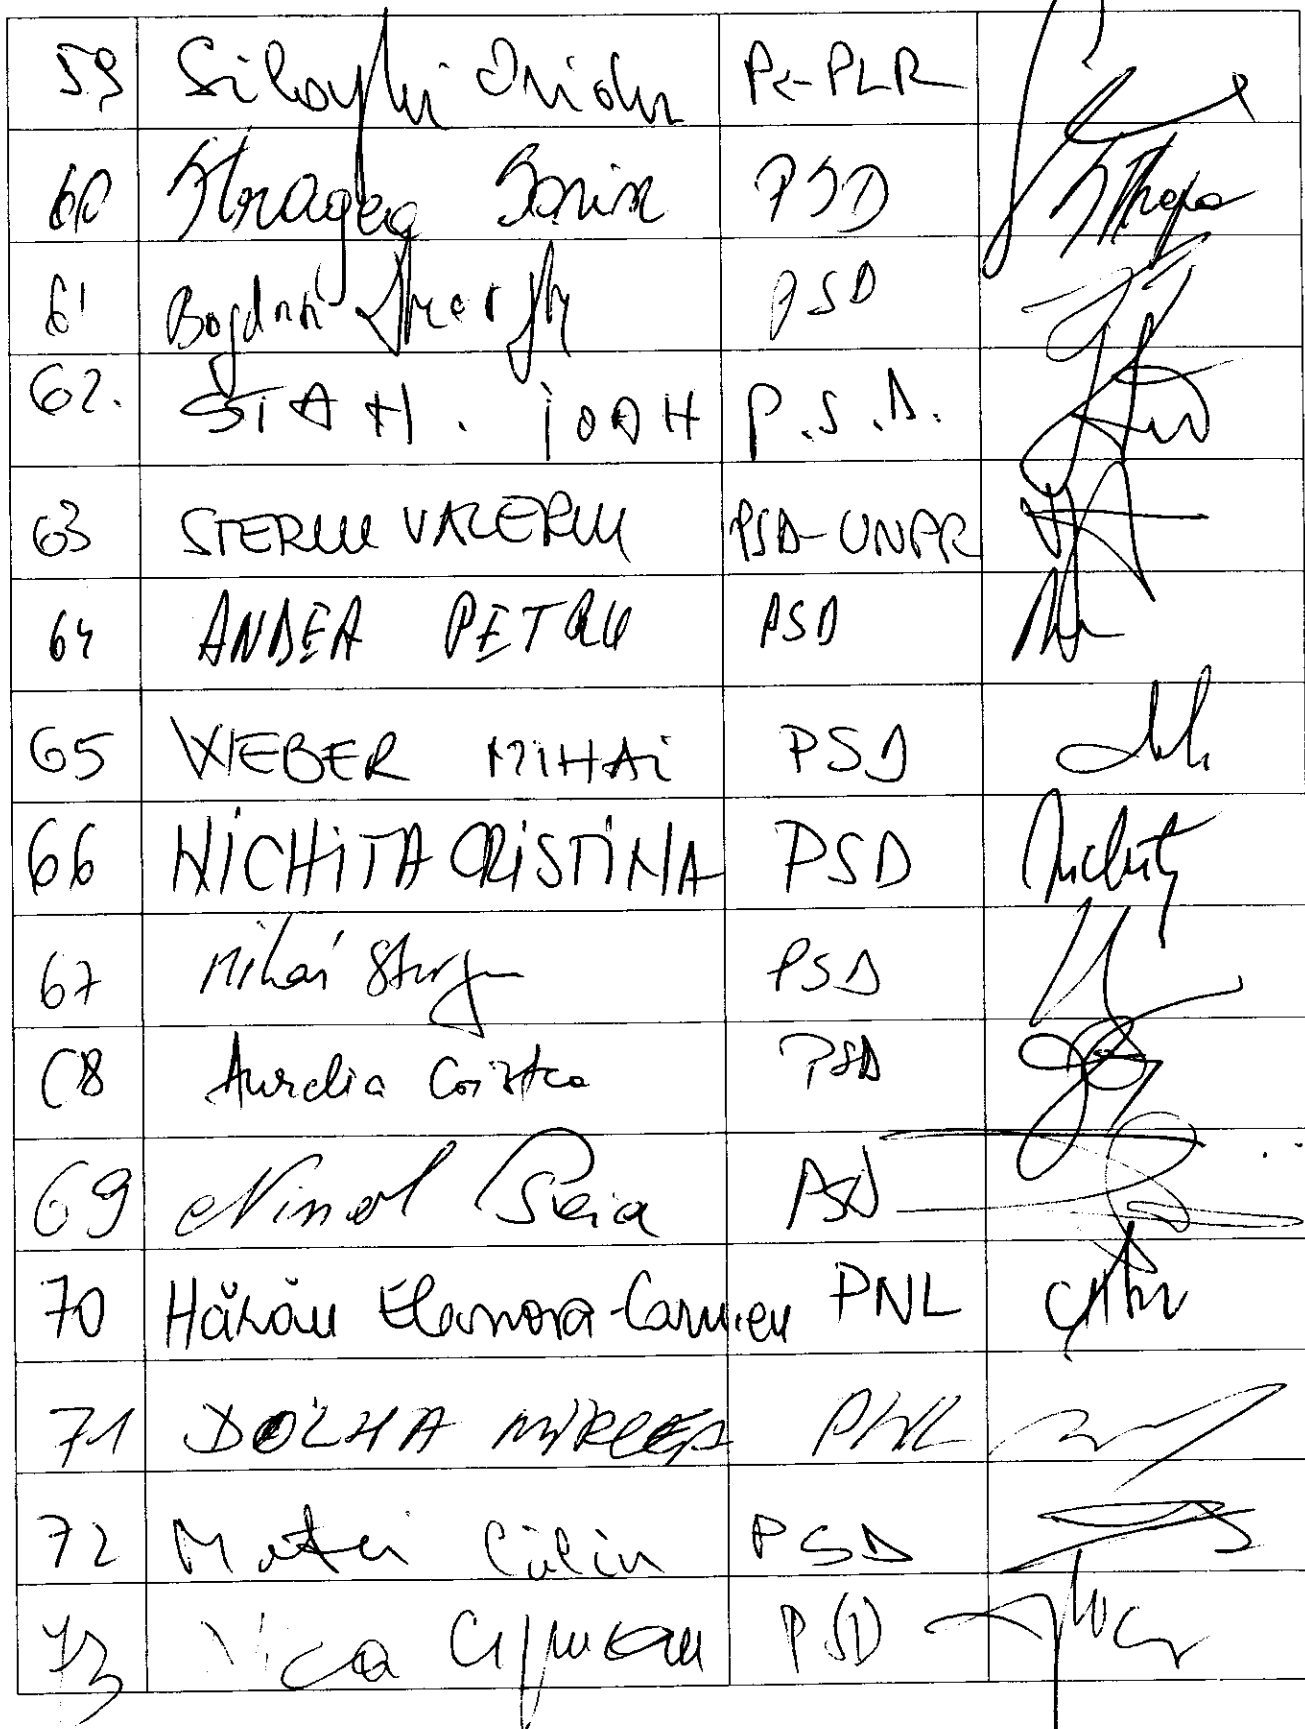 59 Silaghi Ovidiu PC-PLR
60 Stragea Sorin PSD
61 Bogdan PSD
62. STAN. IOAN P.S.D.
63 STERIU VALERIU PSD-UNPR
64 ANDEA PETRU PSD
65 WEBER MIHAI PSD
66 NICHITA CRISTINA PSD
67 Mihai Sturzu PSD
68 Aurelia Cristea PSD
69 Ninel Peia PSD
70 Hărău Eleonora-Carmen PNL
71 DOLHA MIRCEA PNL
72 Matei Călin PSD
73 PSD